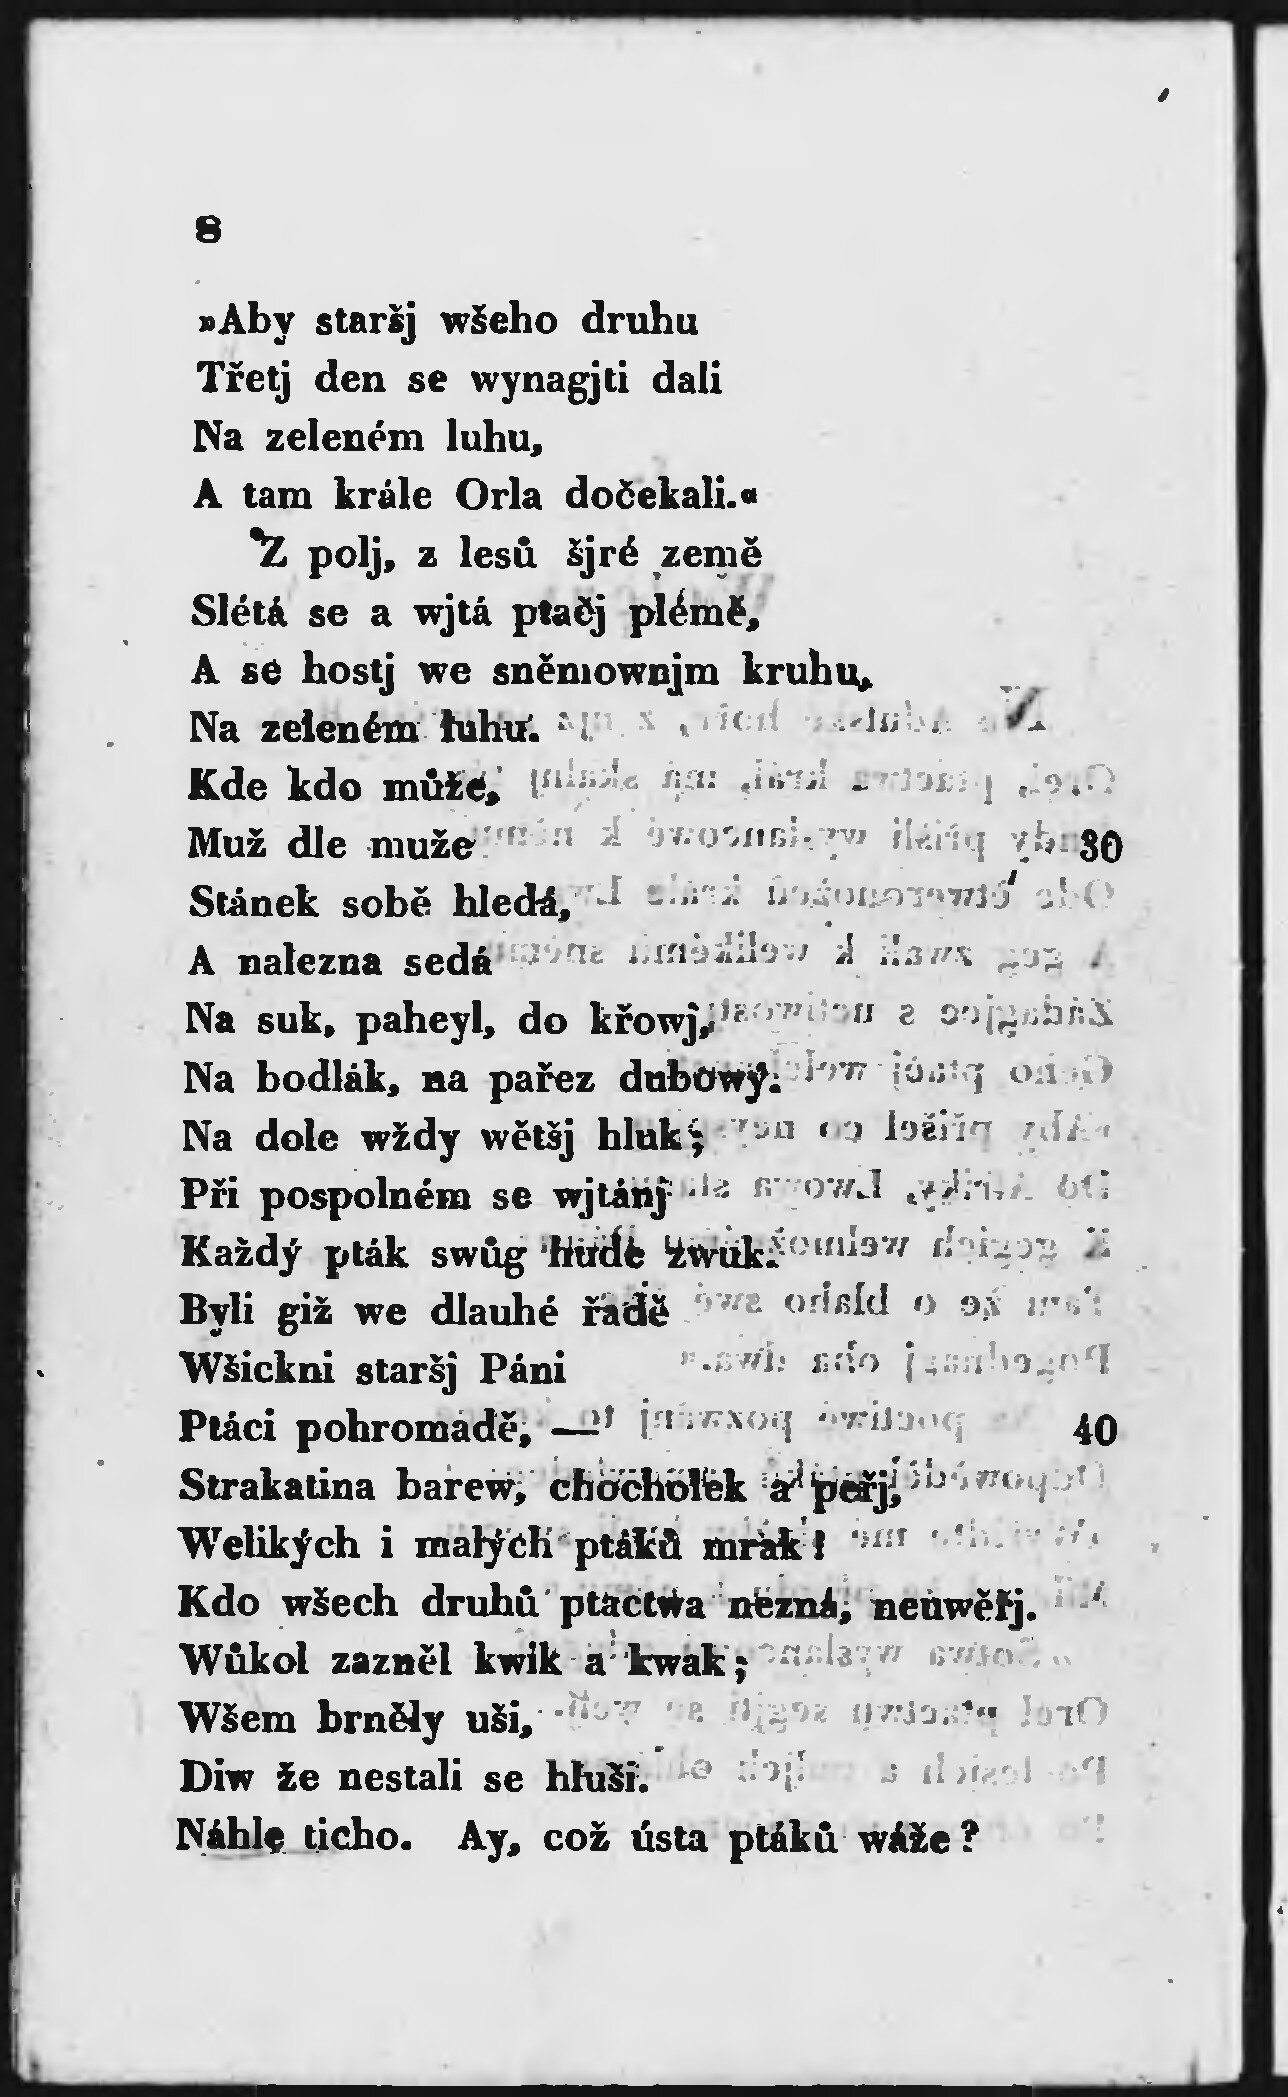 8
»Aby staršj wšeho druhu
Třetj den se wynagjti dali
Na zeleném luhu,
A tam krále Orla dočekali.«
Z polj, z lesů šjré země
Slétá se a wjtá ptačj plémě,
A se hostj we sněmownjm kruhu,
Na zeleném luhu.
Kde kdo může,
Muž dle muže 30
Stánek sobě hledá,
A nalezna sedá
Na suk, paheyl, do křowj,
Na bodlák, na pařez dubowý.
Na dole wždy wětšj hluk;
Při pospolném se wjtánj
Každý pták swůg hude zwuk.
Byli giž we dlauhé řadě
Wšickni staršj Páni
Ptáci pohromadě, — 40
Strakatina barew, chocholek a peřj,
Welikých i malých ptáků mrak!
Kdo wšech druhů ptactwa nezná, neuwěřj.
Wůkol zazněl kwik a kwak;
Wšem brněly uši,
Diw že nestali se hluši.
Náhle ticho. Ay, což ústa ptáků wáže?